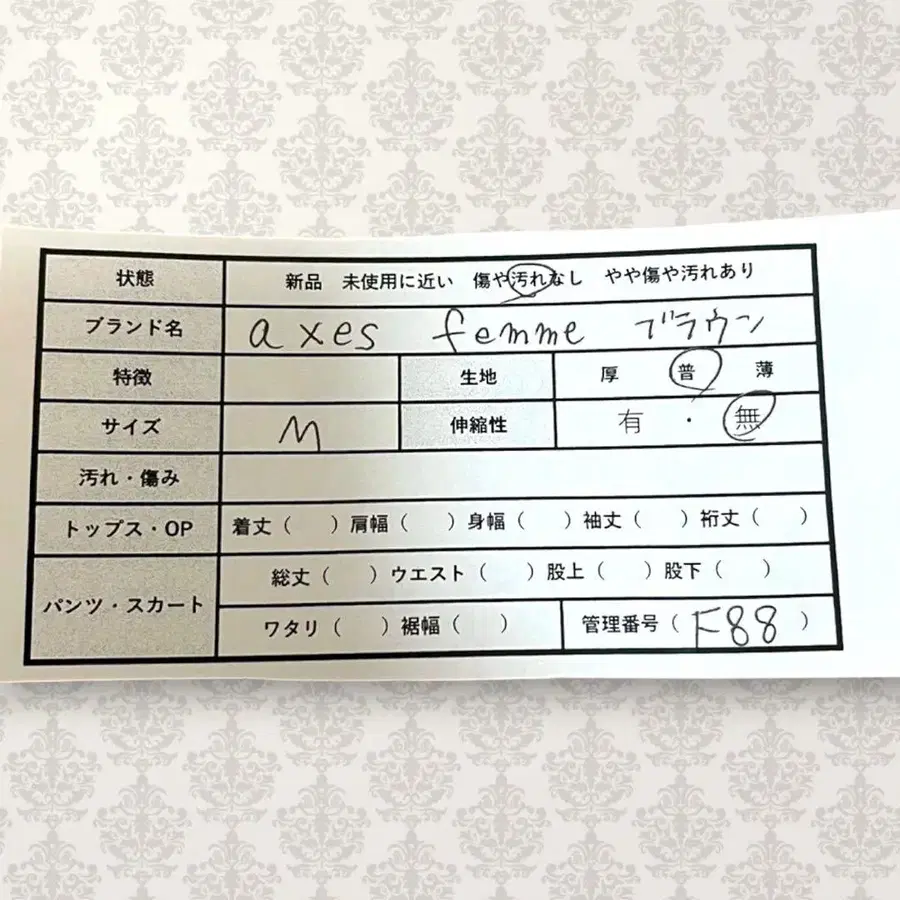 状態 新品 未使用に近い 傷や汚れなし やや傷や汚れあり
ブランド名 axes femme ブラウン
特徴 生地 厚 普 薄
サイズ M 伸縮性 有 ・ 無
汚れ・傷み
トップス・OP 着丈( )肩幅( )身幅( )袖丈( )裄丈( )
パンツ・スカート 総丈( )ウエスト( )股上( )股下( )
ワタリ( )裾幅( ) 管理番号(F88)